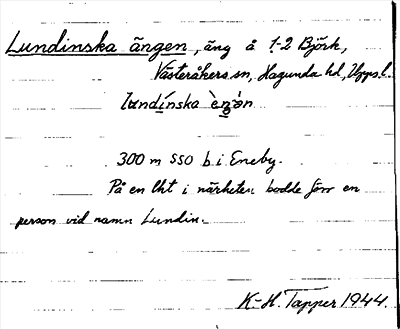 Lundinska ängen, äng å 1-2 Björk,
Västeråkers sn, Hagunda hd, Upps. l.
lundínska èŋən
300 m SSO b. i Eneby.
På en lht i närheten bodde förr en
person vid namn Lundin.
K-H. Tapper 1944.